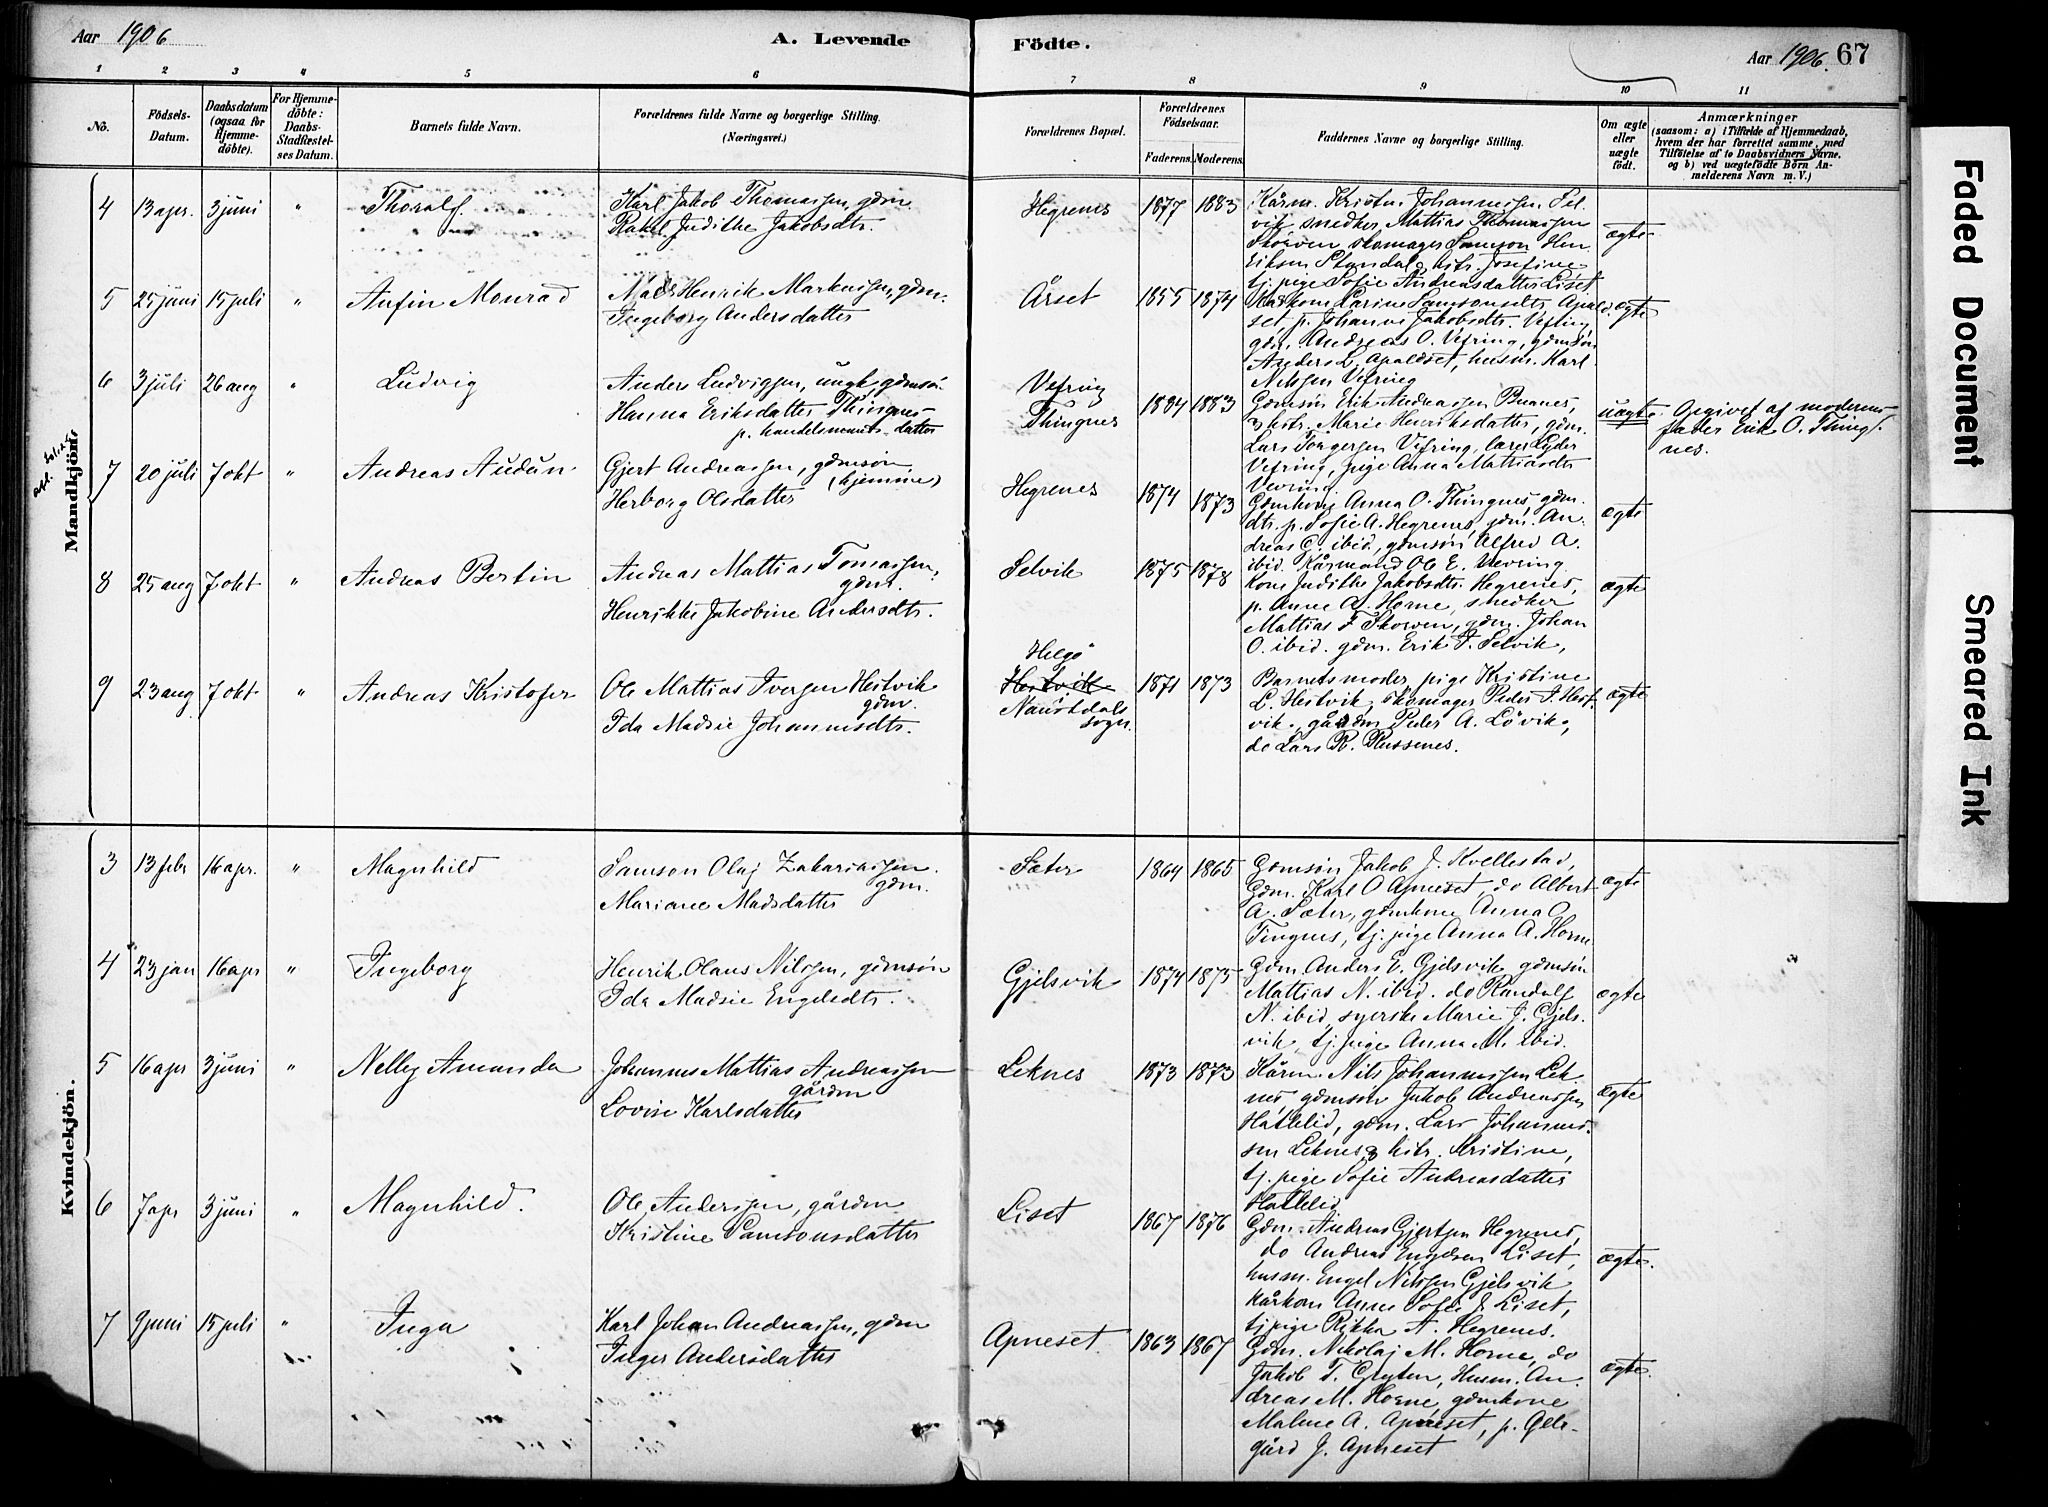 Aar 1906
A. Levende Födte.
Aar 1906. 67
1 2 3 4 5 6 7 8 9 10 11
No.
Födsels-
Datum.
Daabsdatum
(ogsaa for
Hjemme-
döbte).
For Hjemme-
döbte:
Daabs-
Stadfæstel-
ses Datum.
Barnets fulde Navn.
Forældrenes fulde Navne og borgerlige Stilling.
(Næringsvei.)
Forældrenes Bopæl.
Forældrenes
Födselsaar.
Faderens. Moderens.
Faddernes Navne og borgerlige Stilling.
Om ægte
eller
uægte
födt.
Anmærkninger
(saasom: a) i Tilfælde af Hjemmedaab,
hvem der har forrettet samme, med
Tilföielse af to Daabsvidners Navne.
og b) ved uægtefödte Börn An-
melderens Navn m. V.)
Mandkjön.
4 13 apr. 3 juni " Thoralf.
Karl Jakob Thomassen, gdm
Rakel Judithe Jakobsdtr.
Hegrenes 1877 1883
Kårm. Kristen Johannessen Sel-
vik snedker Mattias Thomassen
Skorven skomager Samson Hen
riksen Standal & hstr. Josefine
tj. pige Sofie Andreasdatter Liset.
ægte
5 25 juni 15 juli " Anfin Monrad
Mads Henrik Markussen, gdm.
Ingeborg Andersdatter
Årset 1855 1874
Kårkone Karine Samsonsdtr. Apald-
set, p. Johanne Jakobsdtr. Vefring,
gdm. Andreas O. Vefring, gdmsön
Anders L. Apaldset, husm. Karl
Nilssen Vefring
ægte
6 3 juli 26 aug " Ludvig
Anders Ludvigsen, ungk, gdmsön
Hanna Eriksdatter Thingnes
p. handelsmands datter
Vefring
Thingnes
1884 1883
Gdmsön Erik Andreassen Buanes,
& hstr. Marie Henriksdatter, gdm.
Lars Torgersen Vefring, Lars Peder
Vefring, pige Anna Mathiasdtr
Vevring.
uægte. Opgivet af moderens
fader Erik O. Thing-
nes.
7 20 juli 7 okt " Andreas Audun
Gjert Andreassen, gdmsön
(hjemme)
Herborg Olsdatter
Hegrenes 1874 1873
Gdmkone Anna O. Thingnes, gdm.
dtr. p. Sofie A. Hegrenes, gdm. An-
dreas G. ibid, gdmsön Alfred A.
ibid. Kårmand Ole E. Vevring.
ægte
8 25 aug 7 okt " Andreas Bertin
Andreas Mattias Tomassen,
gdm.
Henrikke Jakobine Andersdtr.
Selvik 1875 1878
Kone Judithe Jakobsdtr. Hegrenes,
p. Anne A. Horne, snedker
Mattias T Skorven, gdm. Johan
O. ibid. gdm. Erik T. Selvik,
ægte
9 23 aug 7 okt " Andreas Kristofer
Ole Mattias Iversen Hestvik
gdm.
Ida Madsie Johannesdtr.
Helgö
Hestvik
Naustdals
sogn.
1871 1873
Barnets moder, pige Kristine
L. Hestvik, skomager Peder I. Hest-
vik, gårdm Peder A. Lövik,
do Lars R. Russenes.
ægte
Kvindekjön.
3 13 febr 16 apr. " Magnhild
Samson Olaj Zakariassen.
gdm.
Mariane Madsdatter
Sæter 1864 1865
Gdmsön Jakob J. Kvellestad,
Gdm. Karl O Apneset, do Albert
A. Sæter, gdmkone Anna O
Tingnes, tj. pige Anna A. Horne
ægte
4 23 jan 16 apr " Ingeborg
Henrik Olaus Nilssen, gdmsön
Ida Madsie Engelsdtr.
Gjelsvik 1874 1875
Gdm. Anders E. Gjelsvik gdmsön
Mattias N. ibid. do Randulf
N. ibid, syerske Marie J. Gjels-
vik, tj. pige Anna M. ibid.
ægte
5 16 apr 3 juni " Nelly Amanda
Johannes Mattias Andreassen
gårdm
Lovise Karlsdatter
Leknes 1873 1873
Kårm. Nils Johannessen Lek-
nes gdmsön Jakob Andreassen
Hatlelid, gdm. Lars Johannes-
sen Leknes & hstr. Kristine,
tj. pige Sofie Andreasdatter
Hatlelid
ægte
6 7 apr 3 juni " Magnhild.
Ole Anderssen, gårdm
Kristine Samsonsdatter
Liset 1867 1876
Gdm. Andreas Gjertsen Hegrenes,
do Andreas Engelsen Liset,
husm. Engel Nilssen Gjelsvik
kårkone Anne Sofie J. Liset,
tj pige Rikka A. Hegrenes.
ægte.
7 9 juni 15 juli " Inga
Karl Johan Andreassen, gdm
Inger Andersdatter
Apneset. 1863 1867
Gdm. Nikolaj M. Horne, do
Jakob T. Gryten, Husm. An-
dreas M. Horne, gdmkone
Malene A. Apneset, p. Olle-
gård J. Apneset
ægte.
Faded Document
Smeared Ink